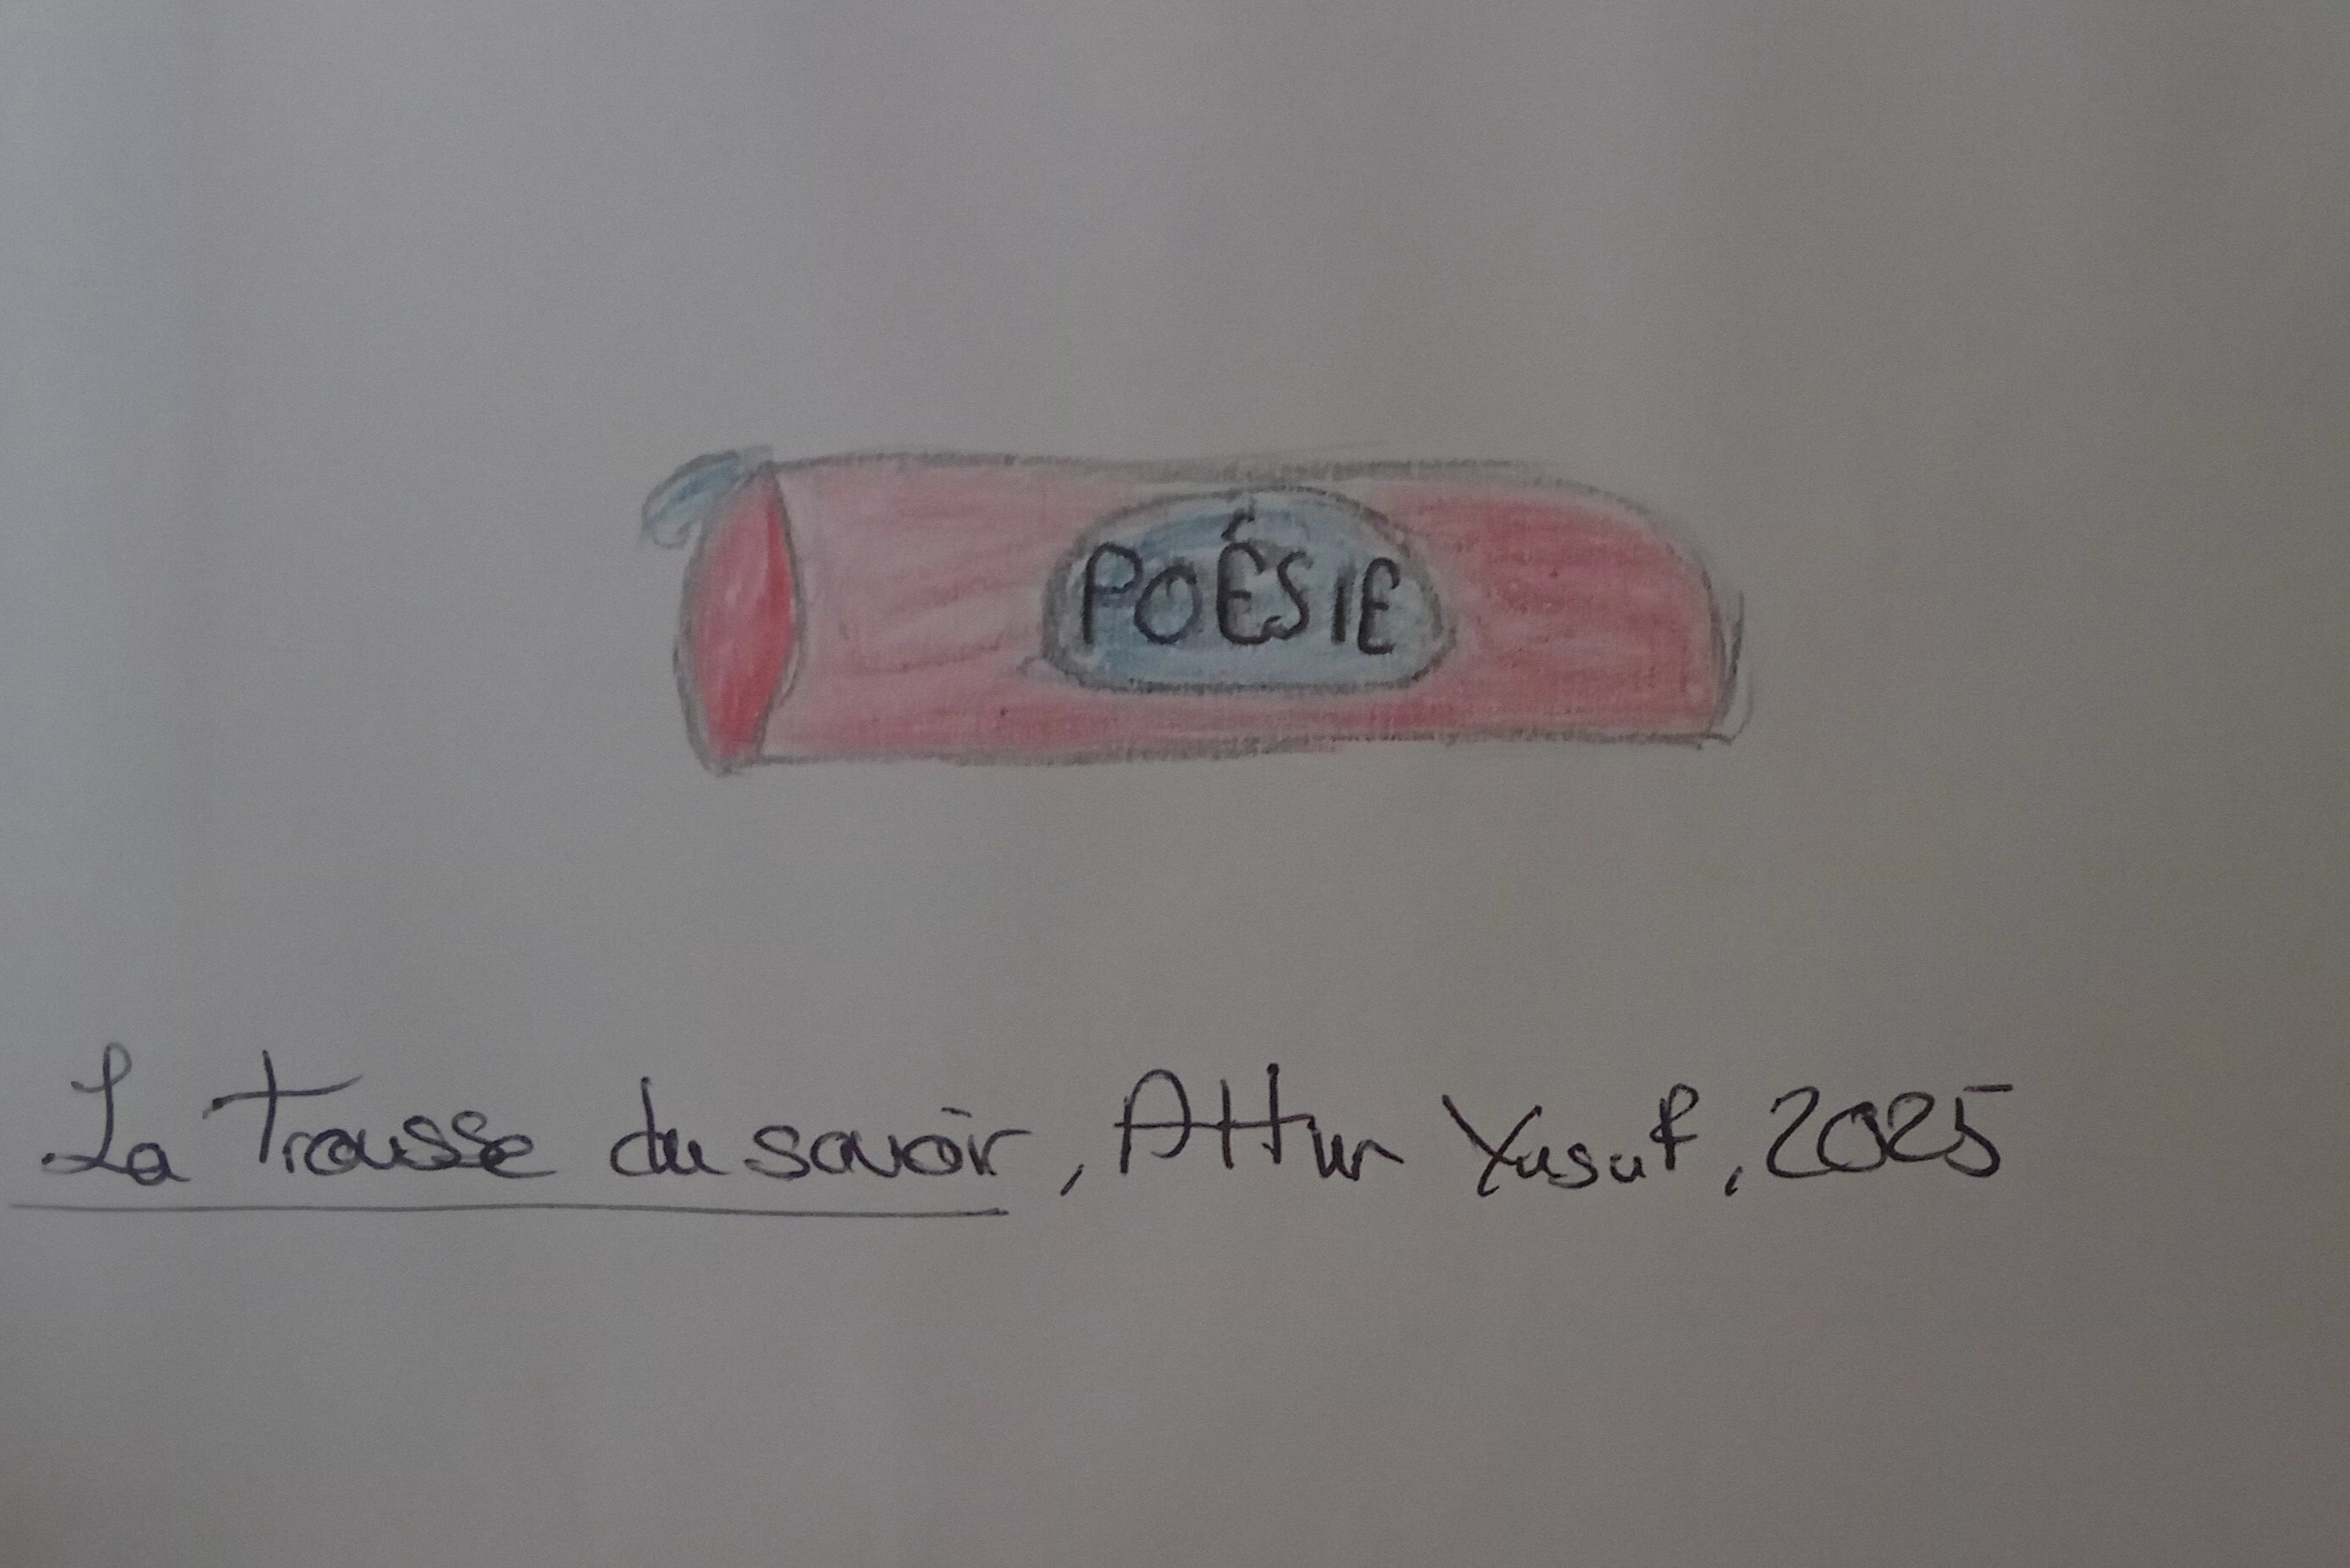 POÉSIE
La trousse du savoir, Attun Yusuf, 2025